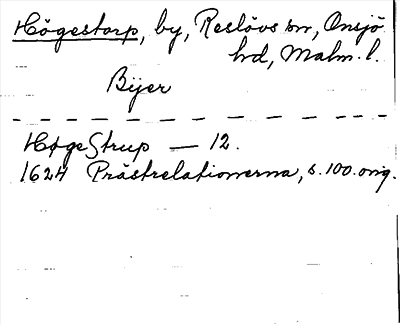 Högestorp, by, Reslövs sn, Onsjö
hd, Malm. l.
Byer
HøgeStrup — 12.
1624 Prästrelationerna, s. 100. orig.